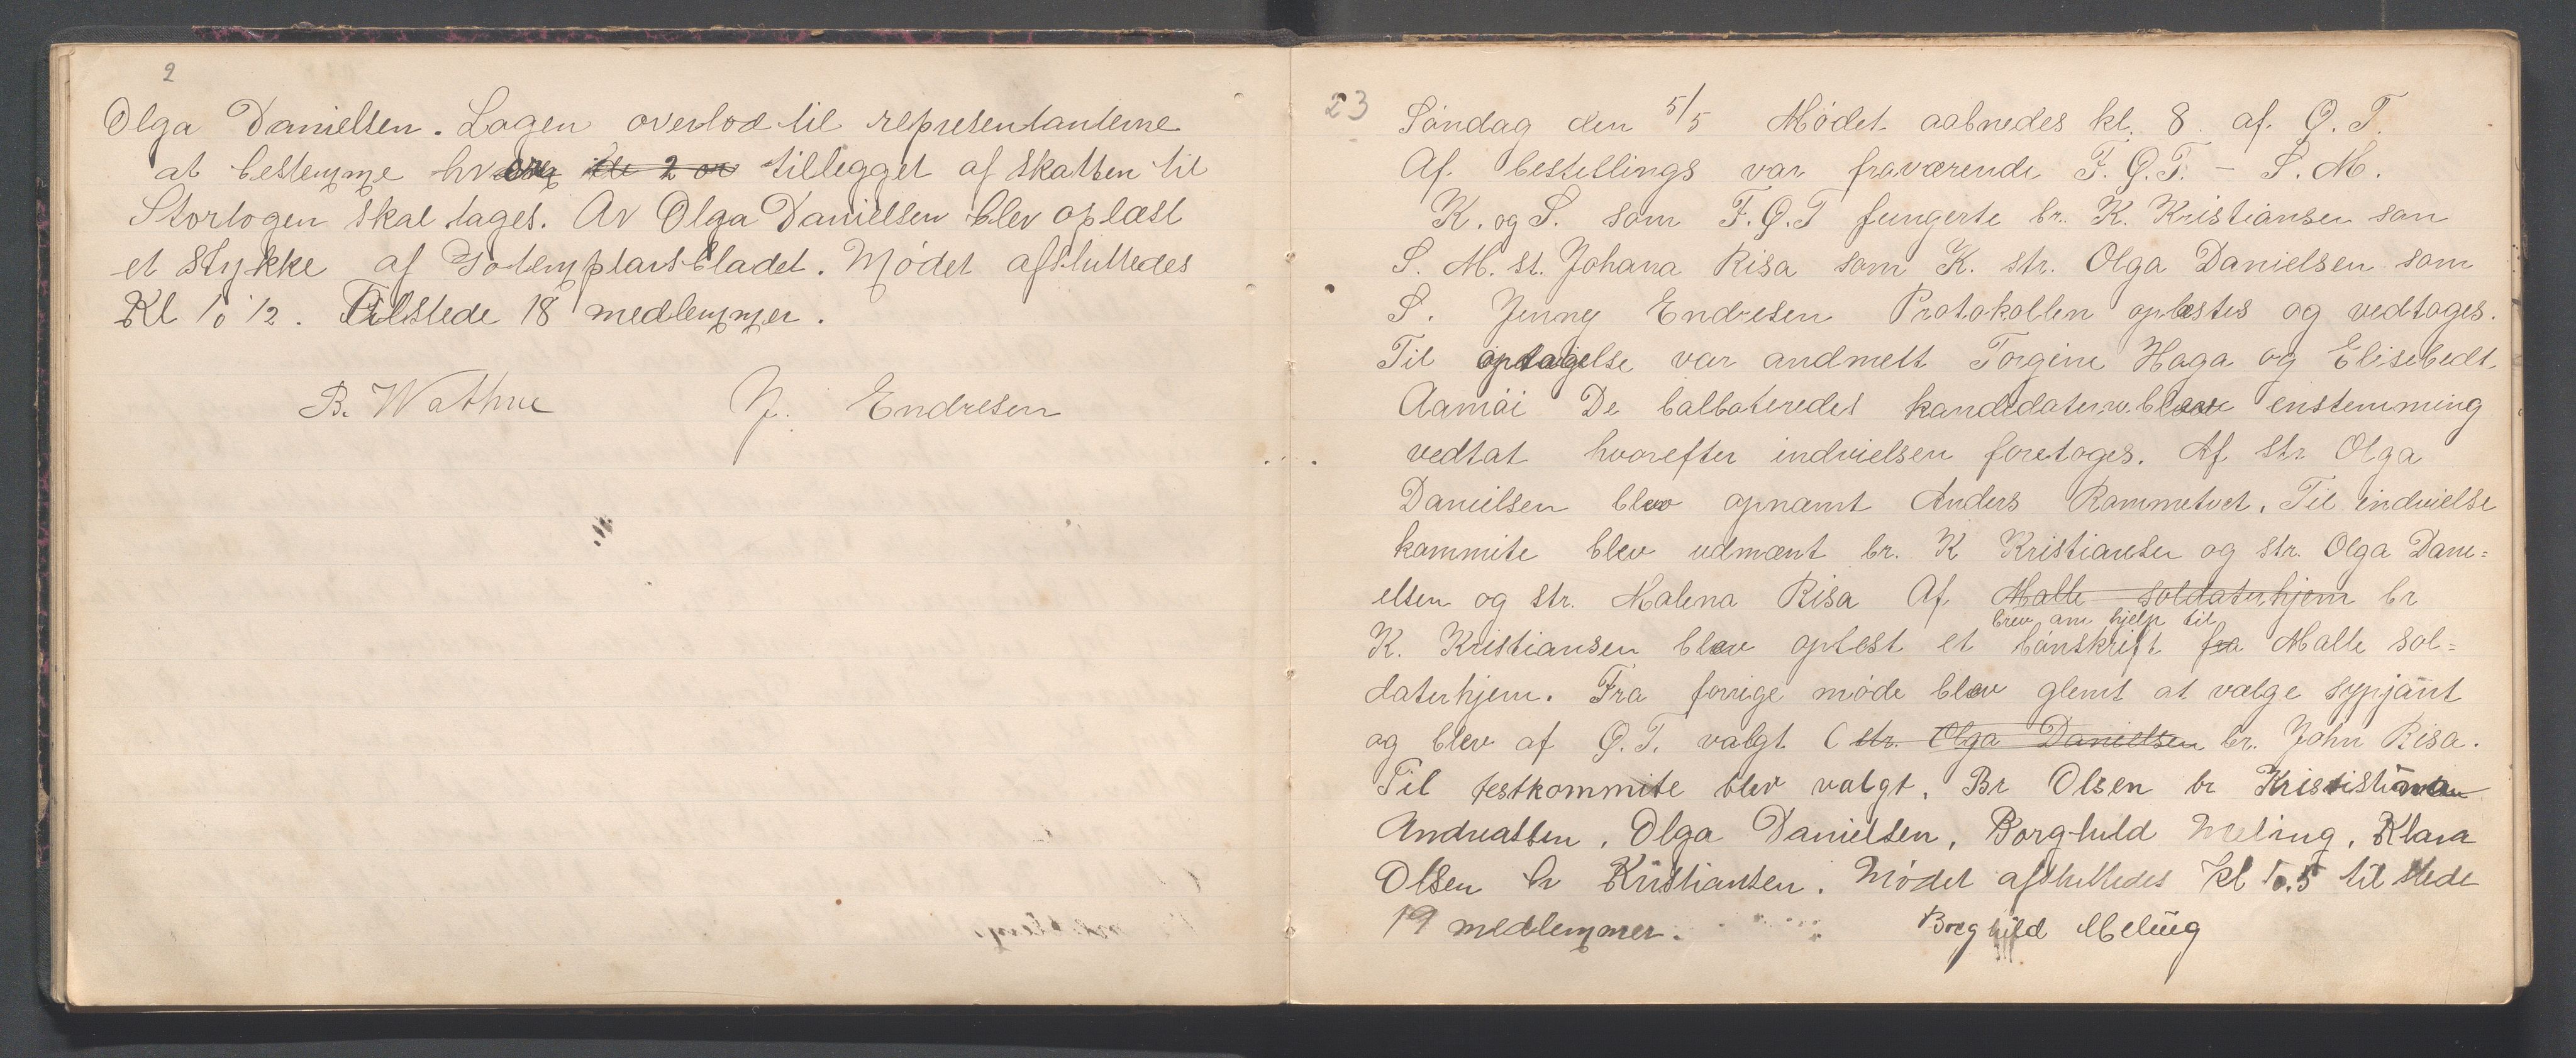 2
Olga Danielsen. Logen overlod til representanterne
at bestemme hvor de 2 ør tillegget af skatten til
Storlogen skal tages. Av Olga Danielsen blev oplæst
et stykke af Goتemplarsbladet. Mødet afsluttedes
Kl 10 1/2. Tilstede 18 medlemmer.
B. Wathne J. Endresen
23
Søndag den 5/5 Mødet aabnedes kl. 8 af. O. T.
Af. bestellings var fraværende F. O. T. – S. M.
K. og S. som F. O. T fungerte br. K. Kristiansen som
S. M. st. Johana Risa som K. str. Olga Danielsen som
S. Jenny Endresen Protokollen oplæstes og vedtoges.
Til optagelse var andmelt Torgine Haga og Elisebedt
Aamøi De balloteredes kandedaterne blev enstemming
vedtat hvorefter indvielsen foretoges. Af str Olga
Danielsen blev opnæmt Anders Rammetvet. Til indvielse
kommite blev udmænt br. K Kristiansen og str. Olga Dani=
elsen og str. Malena Risa Af Malle soldaterhjem br
brev om hjelp til
K. Kristiansen blev oplest et bønskrift fra Malle sol=
daterhjem. Fra forrige møde blev glemt at vælge sypjänt
og blev af O. T. valgt ( str. Olga Danielsen br. John Risa.
Til festkommite blev valgt, Br Olsen br
Andreassen, Olga Danielsen, Borghild Meling, Klara
Olsen br Kristiansen. Mødet afsluttedes Kl 10.5 til stede
19 medlemmer. Borghild Meling